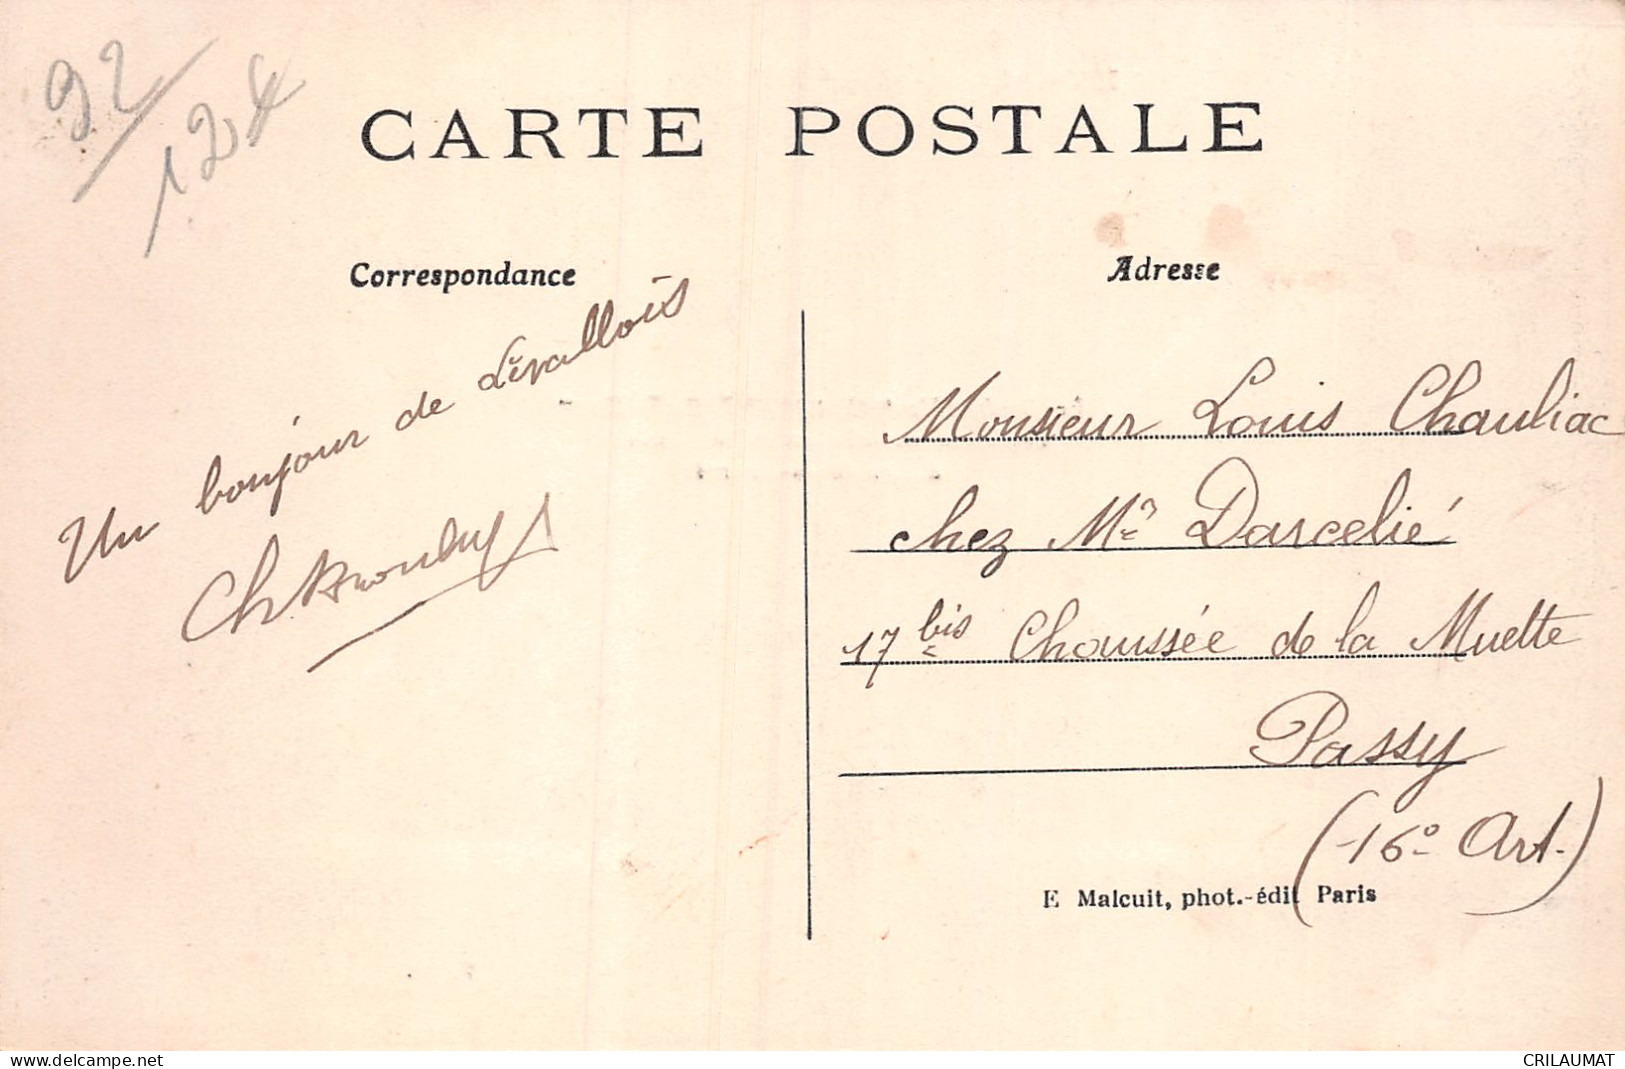 92
124
CARTE POSTALE
Correspondance
Un bonjour de Levallois
Adresse
Monsieur Louis Chauliac
chez Mr Darcelié
17 bis Chaussée de la Muette
Passy
(16e Art.)
E Malcuit, phot.-édit Paris
www.delcampe.net
CRILAUMAT